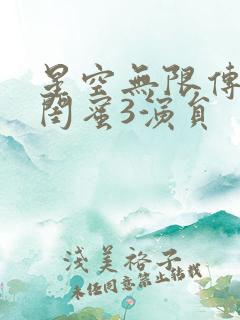 星空無限傳
閨蜜3演員
淺美裕子
未经同意禁止转载